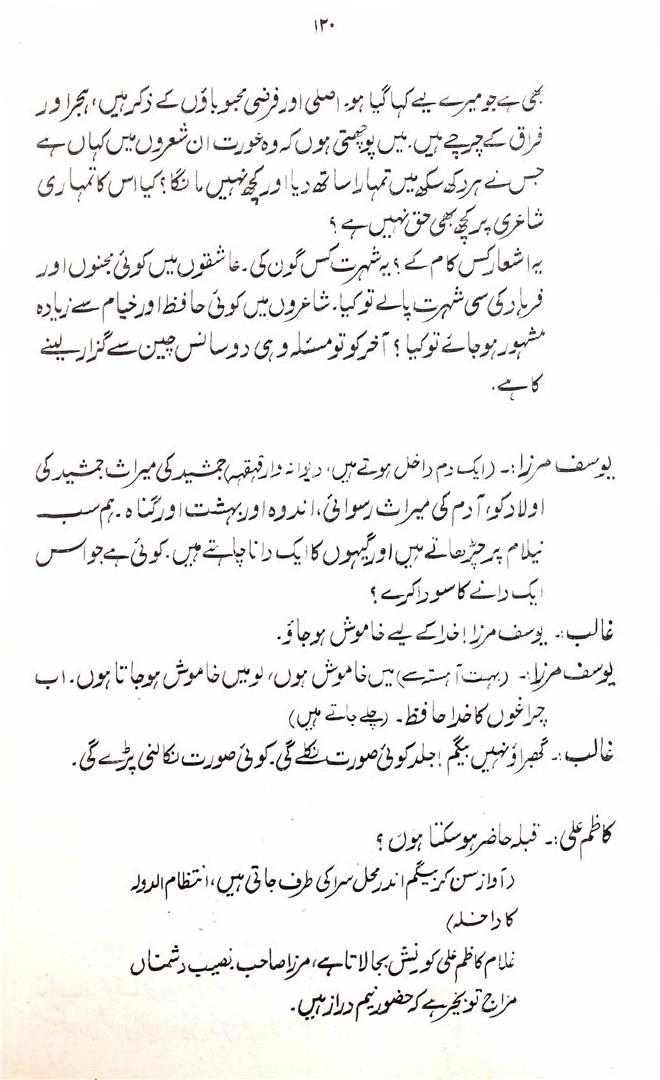 ۱۲۰
بھی ہے جو میرے لیے کہا گیا ہو۔ اصلی اور فرضی محبوباؤں کے ذکر ہیں، ہجر اور
فراق کے چرچے ہیں۔ میں پوچھتی ہوں کہ وہ عورت ان شعروں میں کہاں ہے
جس نے ہر دکھ سکھ میں تمہارا ساتھ دیا اور کچھ نہیں مانگا؟ کیا اس کا تمہاری
شاعری پر کچھ بھی حق نہیں ہے؟
یہ اشعار کس کام کے؟ یہ شہرت کس گون کی۔ عاشقوں میں کوئی مجنوں اور
فرہاد کی سی شہرت پالے تو کیا۔ شاعروں میں کوئی حافظ اور خیام سے زیادہ
مشہور ہو جائے تو کیا؟ آخر کو تو مسئلہ وہی دو سانس چین سے گزار لینے
کا ہے۔
یوسف مرزا:۔ (ایک دم داخل ہوتے ہیں، دیوانہ وار قہقہہ) جمشید کی میراث جمشید کی
اولاد کو، آدم کی میراث رسوائی، اندوہ اور بہشت اور گناہ۔ ہم سب
نیلام پر چڑھاتے ہیں اور گیہوں کا ایک دانا چاہتے ہیں۔ کوئی ہے جو اس
ایک دانے کا سودا کرے؟
غالب:۔ یوسف مرزا! خدا کے لیے خاموش ہو جاؤ۔
یوسف مرزا:۔ (بہت آہستہ سے) میں خاموش ہوں، لو میں خاموش ہو جاتا ہوں۔ اب
چراغوں کا خدا حافظ۔ (چلے جاتے ہیں)
غالب:۔ گھبراؤ نہیں بیگم! جلد کوئی صورت نکلے گی۔ کوئی صورت نکالنی پڑے گی۔
کاظم علی:۔ قبلہ حاضر ہو سکتا ہوں؟
(آواز سن کر بیگم اندر محل سرا کی طرف جاتی ہیں، انتظام الدولہ
کا داخلہ)
غلام کاظم علی کورنش بجا لاتا ہے، مرزا صاحب نصیب دشمناں
مزاج تو بخیر ہے کہ حضور نیم دراز ہیں۔